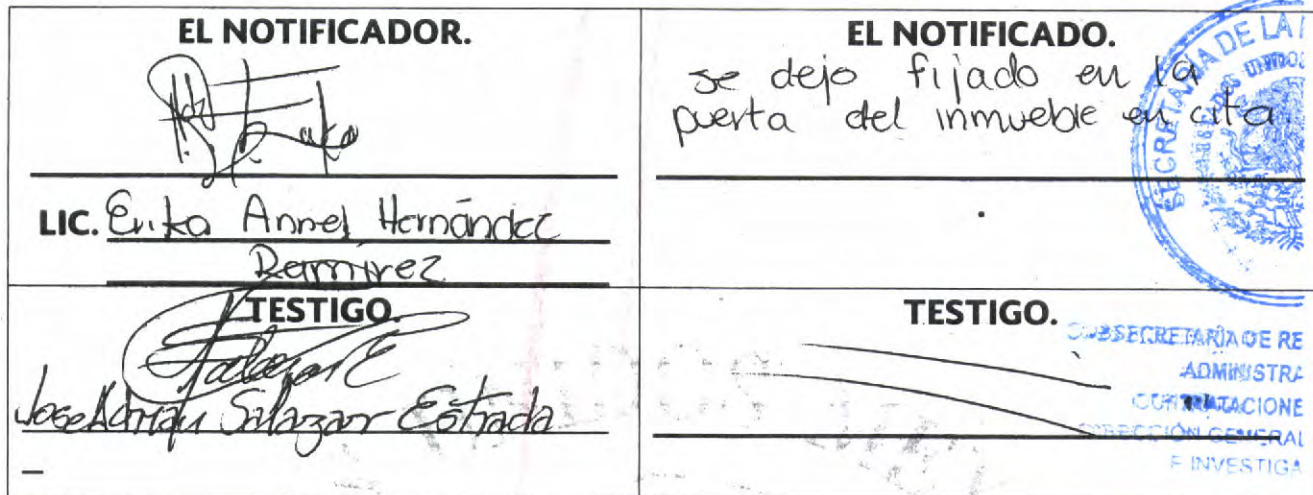 EL NOTIFICADOR.
LIC. Erika Annel Hernández
Ramirez
EL NOTIFICADO.
se dejo fijado en la
puerta del inmueble en cita.
TESTIGO.
Jose Adrian Salazar Estrada
TESTIGO.
SECRETARIA DE LA
UNIDOS
SUBSECRETARÍA DE RE
ADMINISTRA
CONTRATACIONE
DIRECCIÓN GENERAL
E INVESTIGA